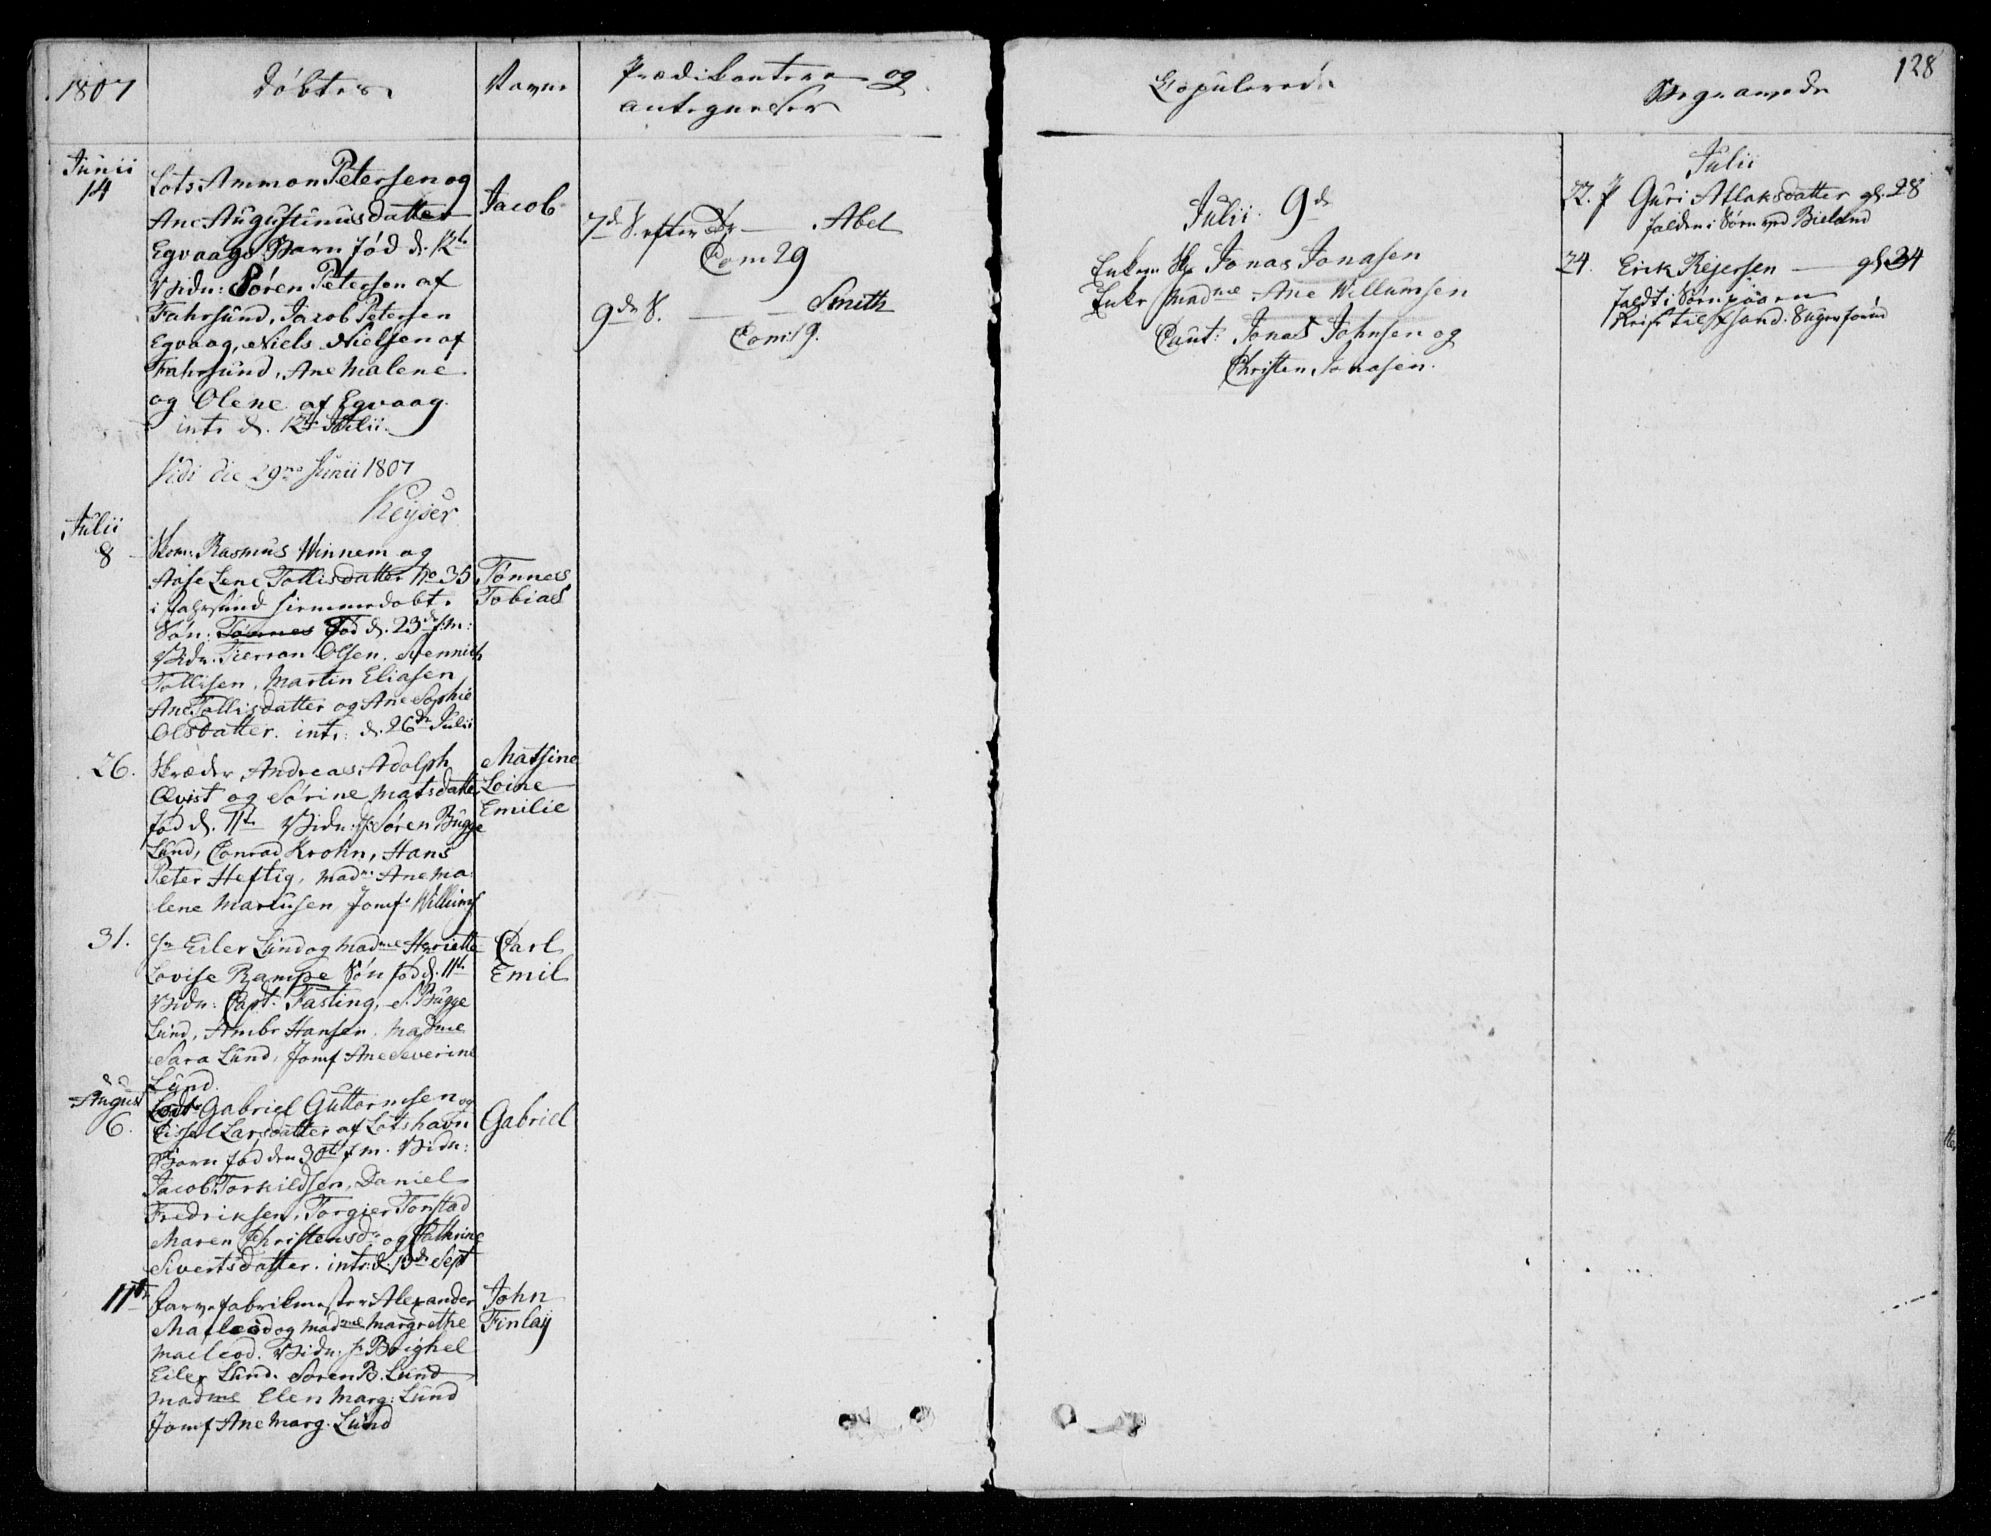 1807
Døbte
Navne
Prædikantere og
antegnelser
Junii
14
Lots Ammon Petersen og
Ane Augustinusdatter
Egvaags Barn fød d. 12te
Vidn: Søren Petersen af
Fahrsund, Jacob Petersen
Egvaag, Niels Nielsen af
Fahrsund, Ane Malene
og Olene af Egvaag.
intr. d. 12te Julii.
Jacob
Vidi die 29no Junii 1807
Keyser
Julii
8
Rasmus Winnem og
Aase Lene Tollisdatter No 35
i Fahrsund hiemmedøbt
Søn: Tønnes Fød d. 23de f. m:
Vidn. Tierran Olsen. Svennich
Tollisen, Martin Eliasen
Ane Tollisdatter og Ane Sophie
Olsdatter. intr: d. 26de Julii
Tønnes
Tobias
26.
Skræder Andreas Adolph
Qvist og Sørine Matsdatter
fød d. 11te Vidn: Søren Bugge
Lund, Conrad Krohn, Hans
Peter Heftig, Madm. Ane Ma-
lene Mariusen Jomf. Willums
Matsine
Loine
Emilie
31.
Hr Eiler Lund og Madme Henriette
Lovise Rampe Søn fød d. 11te
Vidn: Capt. Fasting, S. Bugge
Lund, Ambr Hansen. Madme
Sara Lund, Jomf Ane Severine
Lund.
Carl
Emil
August
6.
Lods Gabriel Guttormsen og
Cissel Larsdatter af Lotshavn
Barn fød den 30te f. m. Vidn:
Jacob Torkildsen, Daniel
Fredriksen, Torgier Tonstad
Maren Christensdr og Cathrine
Sivertsdatter. intr: d. 13de Sept
Gabriel
11te
Farvefabrikmester Alexander
Macleod og Madme Margrethe
Macleod. Vidn: Hr Boighel
Eiler Lund. Søren B. Lund
Madme Elen Marg: Lund
Jomf Ane Marg. Lund
John
Finlay
7de S. efter Tr — Abel
Com 29
9de S. — Smith
Com: 9.
Copulerede
Julii. 9de
Enkem. Jonas Jonasen
Enke Madme Ane Willumsen
Caut: Jonas Johnsen og
Christen Jonasen.
Begravede
128
Julii
22. Guri Atlaksdatter gl. 28
falden i Søen ved Bieland
24. Erik Rejersen — gl. 34
faldt i Søen